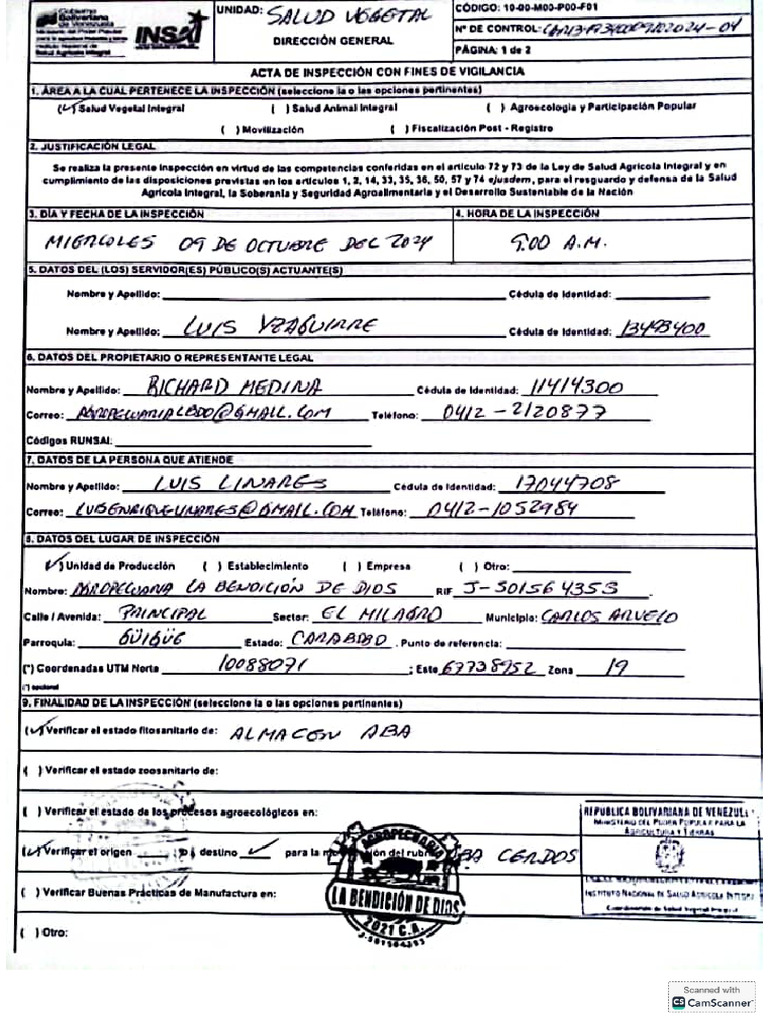 Gobierno
Bolivariano
de Venezuela
INSAI
UNIDAD: SALUD VEGETAL
DIRECCIÓN GENERAL
CÓDIGO: 10-00-M00-P00-F01
Nº DE CONTROL:
PÁGINA: 1 de 2
ACTA DE INSPECCIÓN CON FINES DE VIGILANCIA
1. ÁREA A LA CUAL PERTENECE LA INSPECCIÓN (seleccione la o las opciones pertinentes)
(✓) Salud Vegetal Integral ( ) Salud Animal Integral ( ) Agroecología y Participación Popular
( ) Movilización ( ) Fiscalización Post - Registro
2. JUSTIFICACIÓN LEGAL
Se realiza la presente inspección en virtud de las competencias conferidas en el artículo 72 y 73 de la Ley de Salud Agrícola Integral y en
cumplimiento de las disposiciones previstas en los artículos 1, 2, 14, 33, 35, 36, 50, 57 y 74 ejusdem, para el resguardo y defensa de la Salud
Agrícola Integral, la Soberanía y Seguridad Agroalimentaria y el Desarrollo Sustentable de la Nación
3. DÍA Y FECHA DE LA INSPECCIÓN 4. HORA DE LA INSPECCIÓN
MIERCOLES 09 DE OCTUBRE DEL 2024 9:00 A.M.
5. DATOS DEL (LOS) SERVIDOR(ES) PÚBLICO(S) ACTUANTE(S)
Nombre y Apellido: Cédula de Identidad:
Nombre y Apellido: LUIS YZAGUIRRE Cédula de Identidad: 13493400
6. DATOS DEL PROPIETARIO O REPRESENTANTE LEGAL
Nombre y Apellido: RICHARD MEDINA Cédula de Identidad: 11414300
Correo: AGROPECUARIALBDD@GMAIL.COM Teléfono: 0412-2120877
Códigos RUNSAI:
7. DATOS DE LA PERSONA QUE ATIENDE
Nombre y Apellido: LUIS LINARES Cédula de Identidad: 17044708
Correo: LUISENRIQUELINARES@GMAIL.COM Teléfono: 0412-1052984
8. DATOS DEL LUGAR DE INSPECCIÓN
(✓) Unidad de Producción ( ) Establecimiento ( ) Empresa ( ) Otro:
Nombre: AGROPECUARIA LA BENDICIÓN DE DIOS RIF J-501564353
Calle / Avenida: PRINCIPAL Sector: EL MILAGRO Municipio: CARLOS ARVELO
Parroquia: GÜIGÜE Estado: CARABOBO . Punto de referencia:
(*) Coordenadas UTM Norte 10088071 ; Este 67738952 Zona 19
(*) opcional
9. FINALIDAD DE LA INSPECCIÓN (seleccione la o las opciones pertinentes)
(✓) Verificar el estado fitosanitario de: ALMACEN ABA
( ) Verificar el estado zoosanitario de:
( ) Verificar el estado de los procesos agroecológicos en:
(✓) Verificar el origen destino ✓ para la del rubro ABA CERDOS
( ) Verificar Buenas Prácticas de Manufactura en:
( ) Otro:
AGROPECUARIA
LA BENDICIÓN DE DIOS
2021 C.A.
J-501564353
REPUBLICA BOLIVARIANA DE VENEZUELA
MINISTERIO DEL PODER POPULAR PARA LA
AGRICULTURA Y TIERRAS
INSTITUTO NACIONAL DE SALUD AGRICOLA INTEGRAL
Scanned with
CS CamScanner